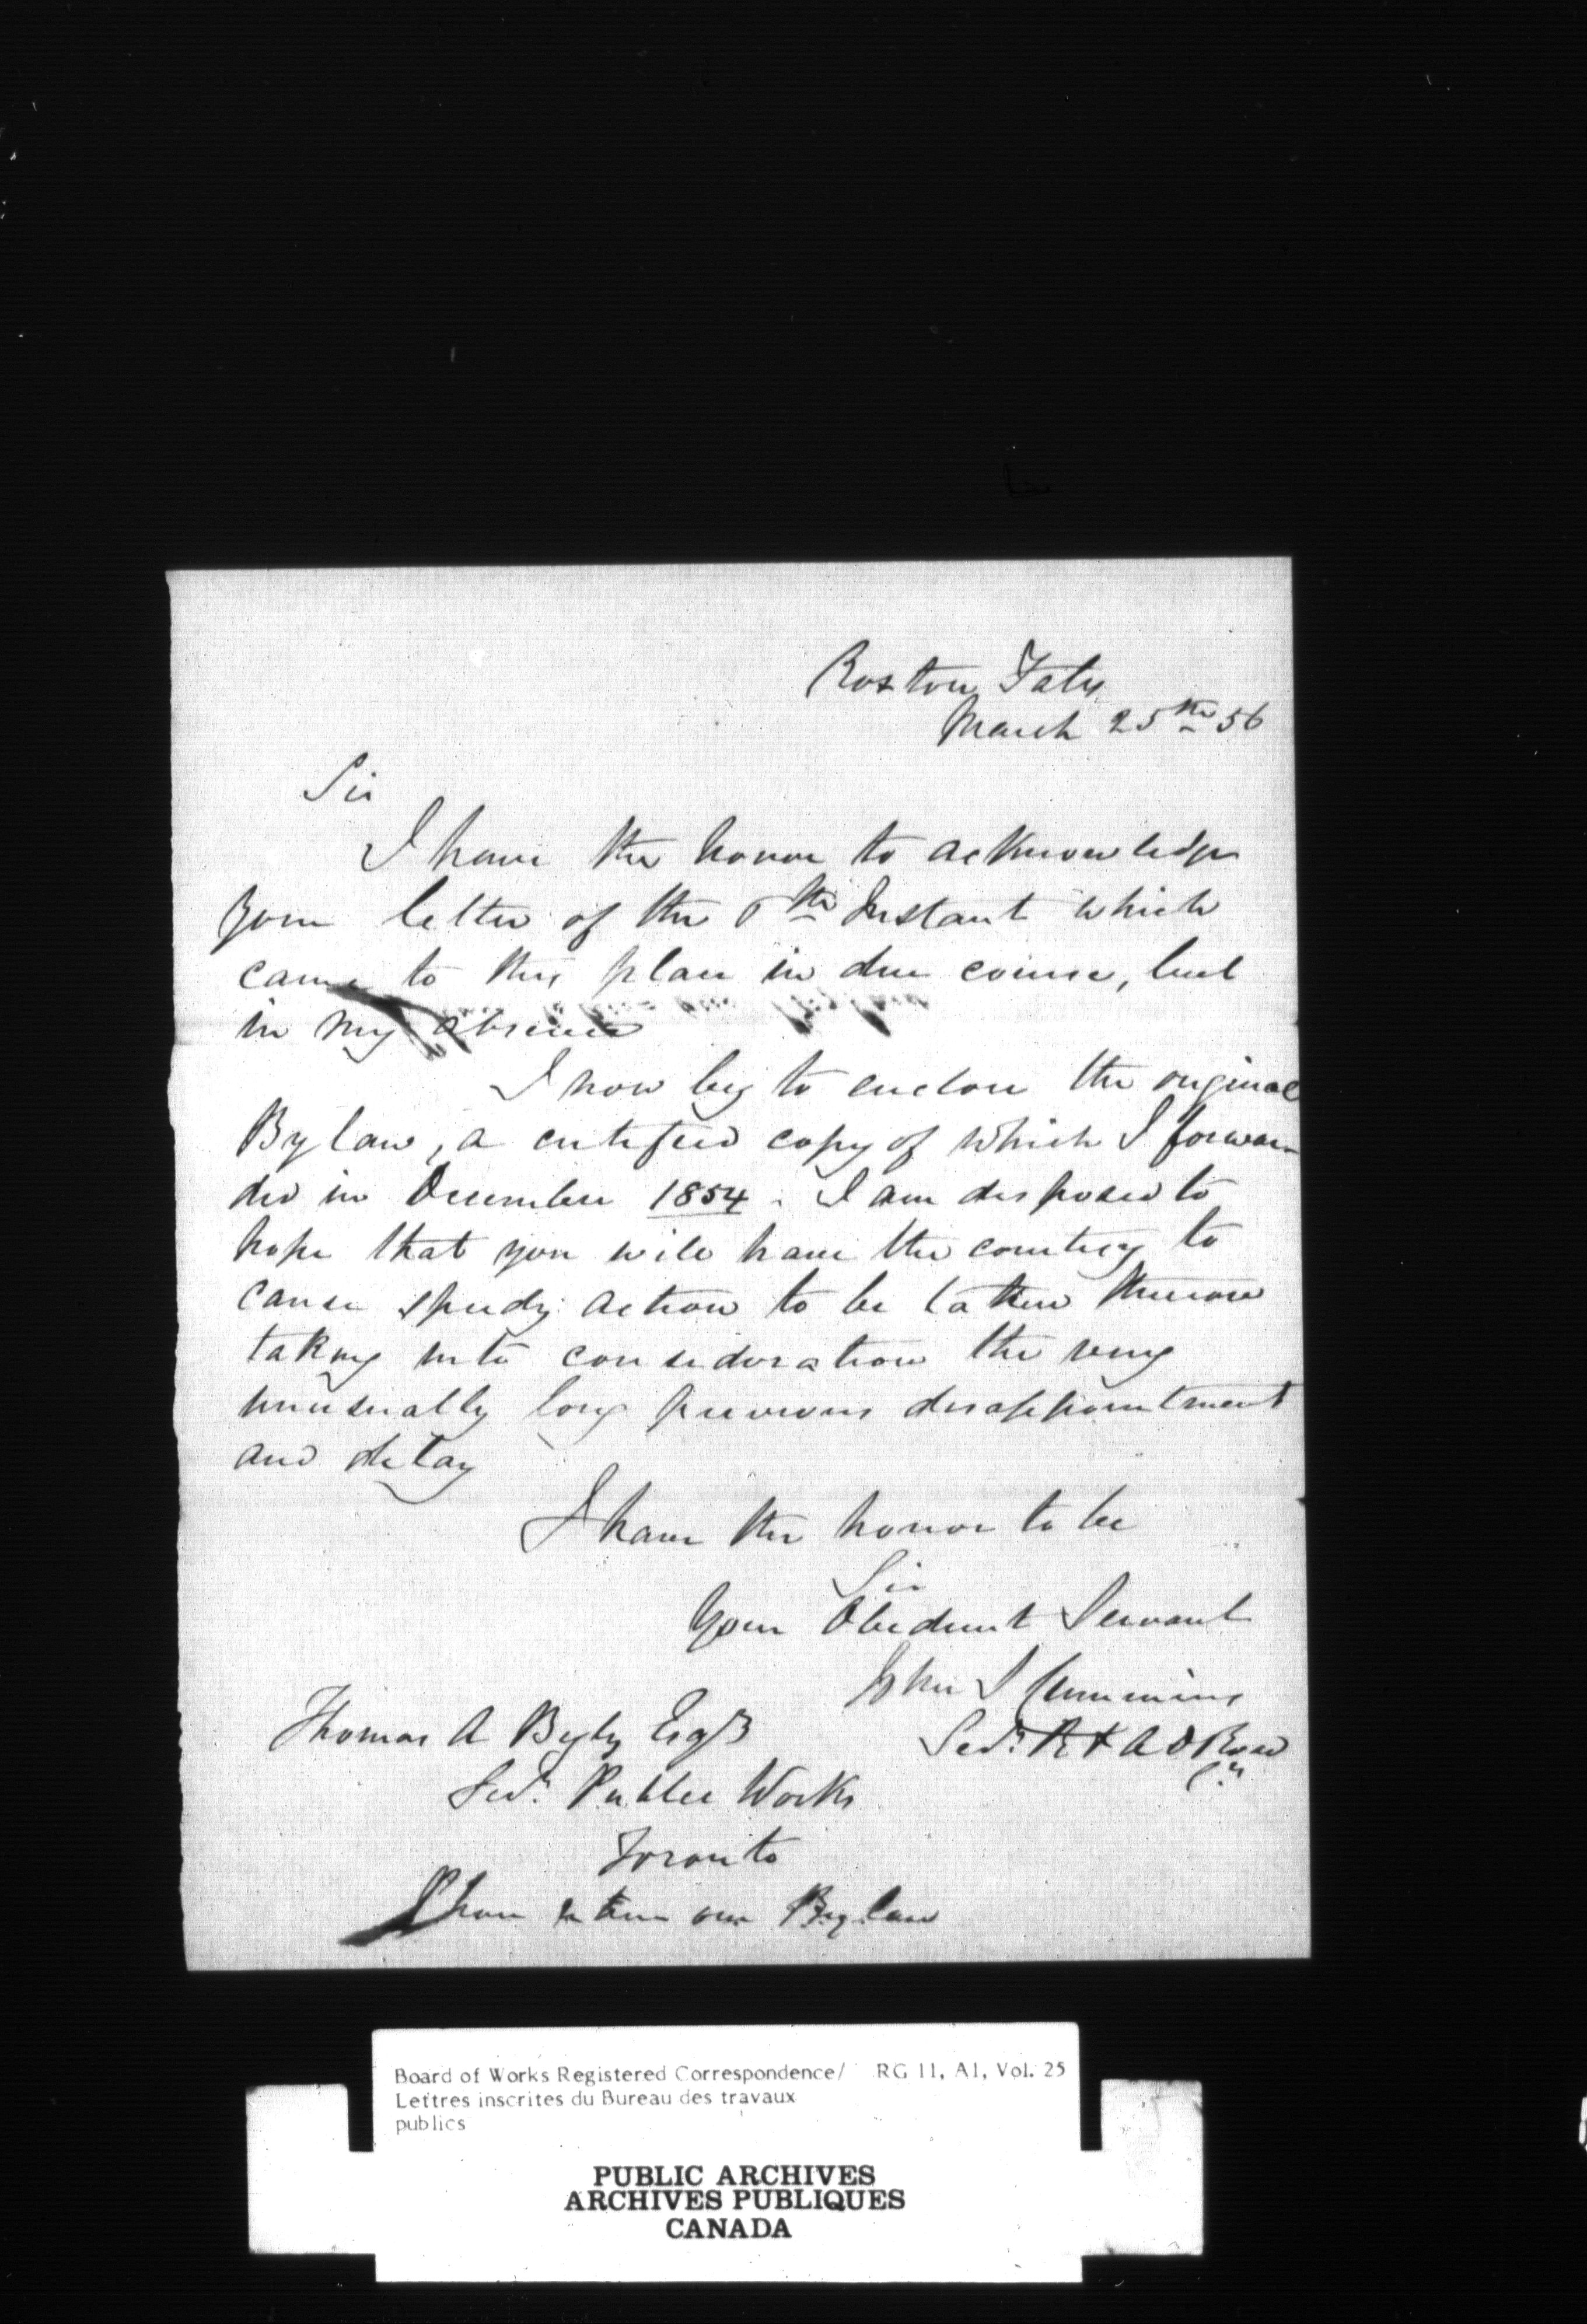 Boston Falls
March 25th 56
Sir
I have the honor to acknowledge
your letter of the 6th Instant which
came to this place in due course, but
in my absence
I now beg to enclose the original
Bylaw, a certified copy of which I forwar-
ded in December 1854. I am disposed to
hope that you will have the courtesy to
cause speedy action to be taken thereon
taking into consideration the very
unusually long previous disappointment
and delay
I have the honor to be
Sir
Your Obedient Servant
John I Cumming
Secy. A D Road
Co
Thomas A Begly Esqr
Secy. Public Works
Toronto
Please return our Bylaw
Board of Works Registered Correspondence/ RG 11, A1, Vol. 25
Lettres inscrites du Bureau des travaux
publics
PUBLIC ARCHIVES
ARCHIVES PUBLIQUES
CANADA